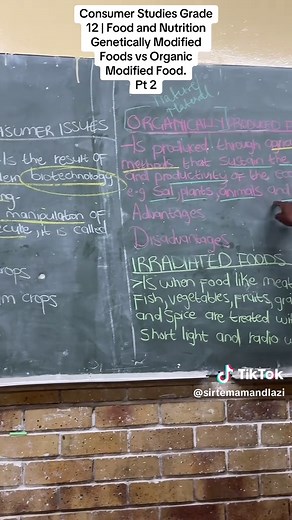 Consumer Studies Grade
12 | Food and Nutrition
Genetically Modified
Foods vs Organic
Modified Food.
Pt 2
Natural
ORGANICALLY PRODUCED
-Is produced through
methods that sustain the
and productivity of the
e.g Soil, plants, animals and
Advantages
Disadvantages
IRRADIATED FOODS
>Is when food like meat
Fish, vegetables, fruits,
and Spice are treated
Short light and radio
NSUMER ISSUES
-Is the result of
biotechnology
manipulation of
, it is called
crops
crops
TikTok
@sirtemamandlazi